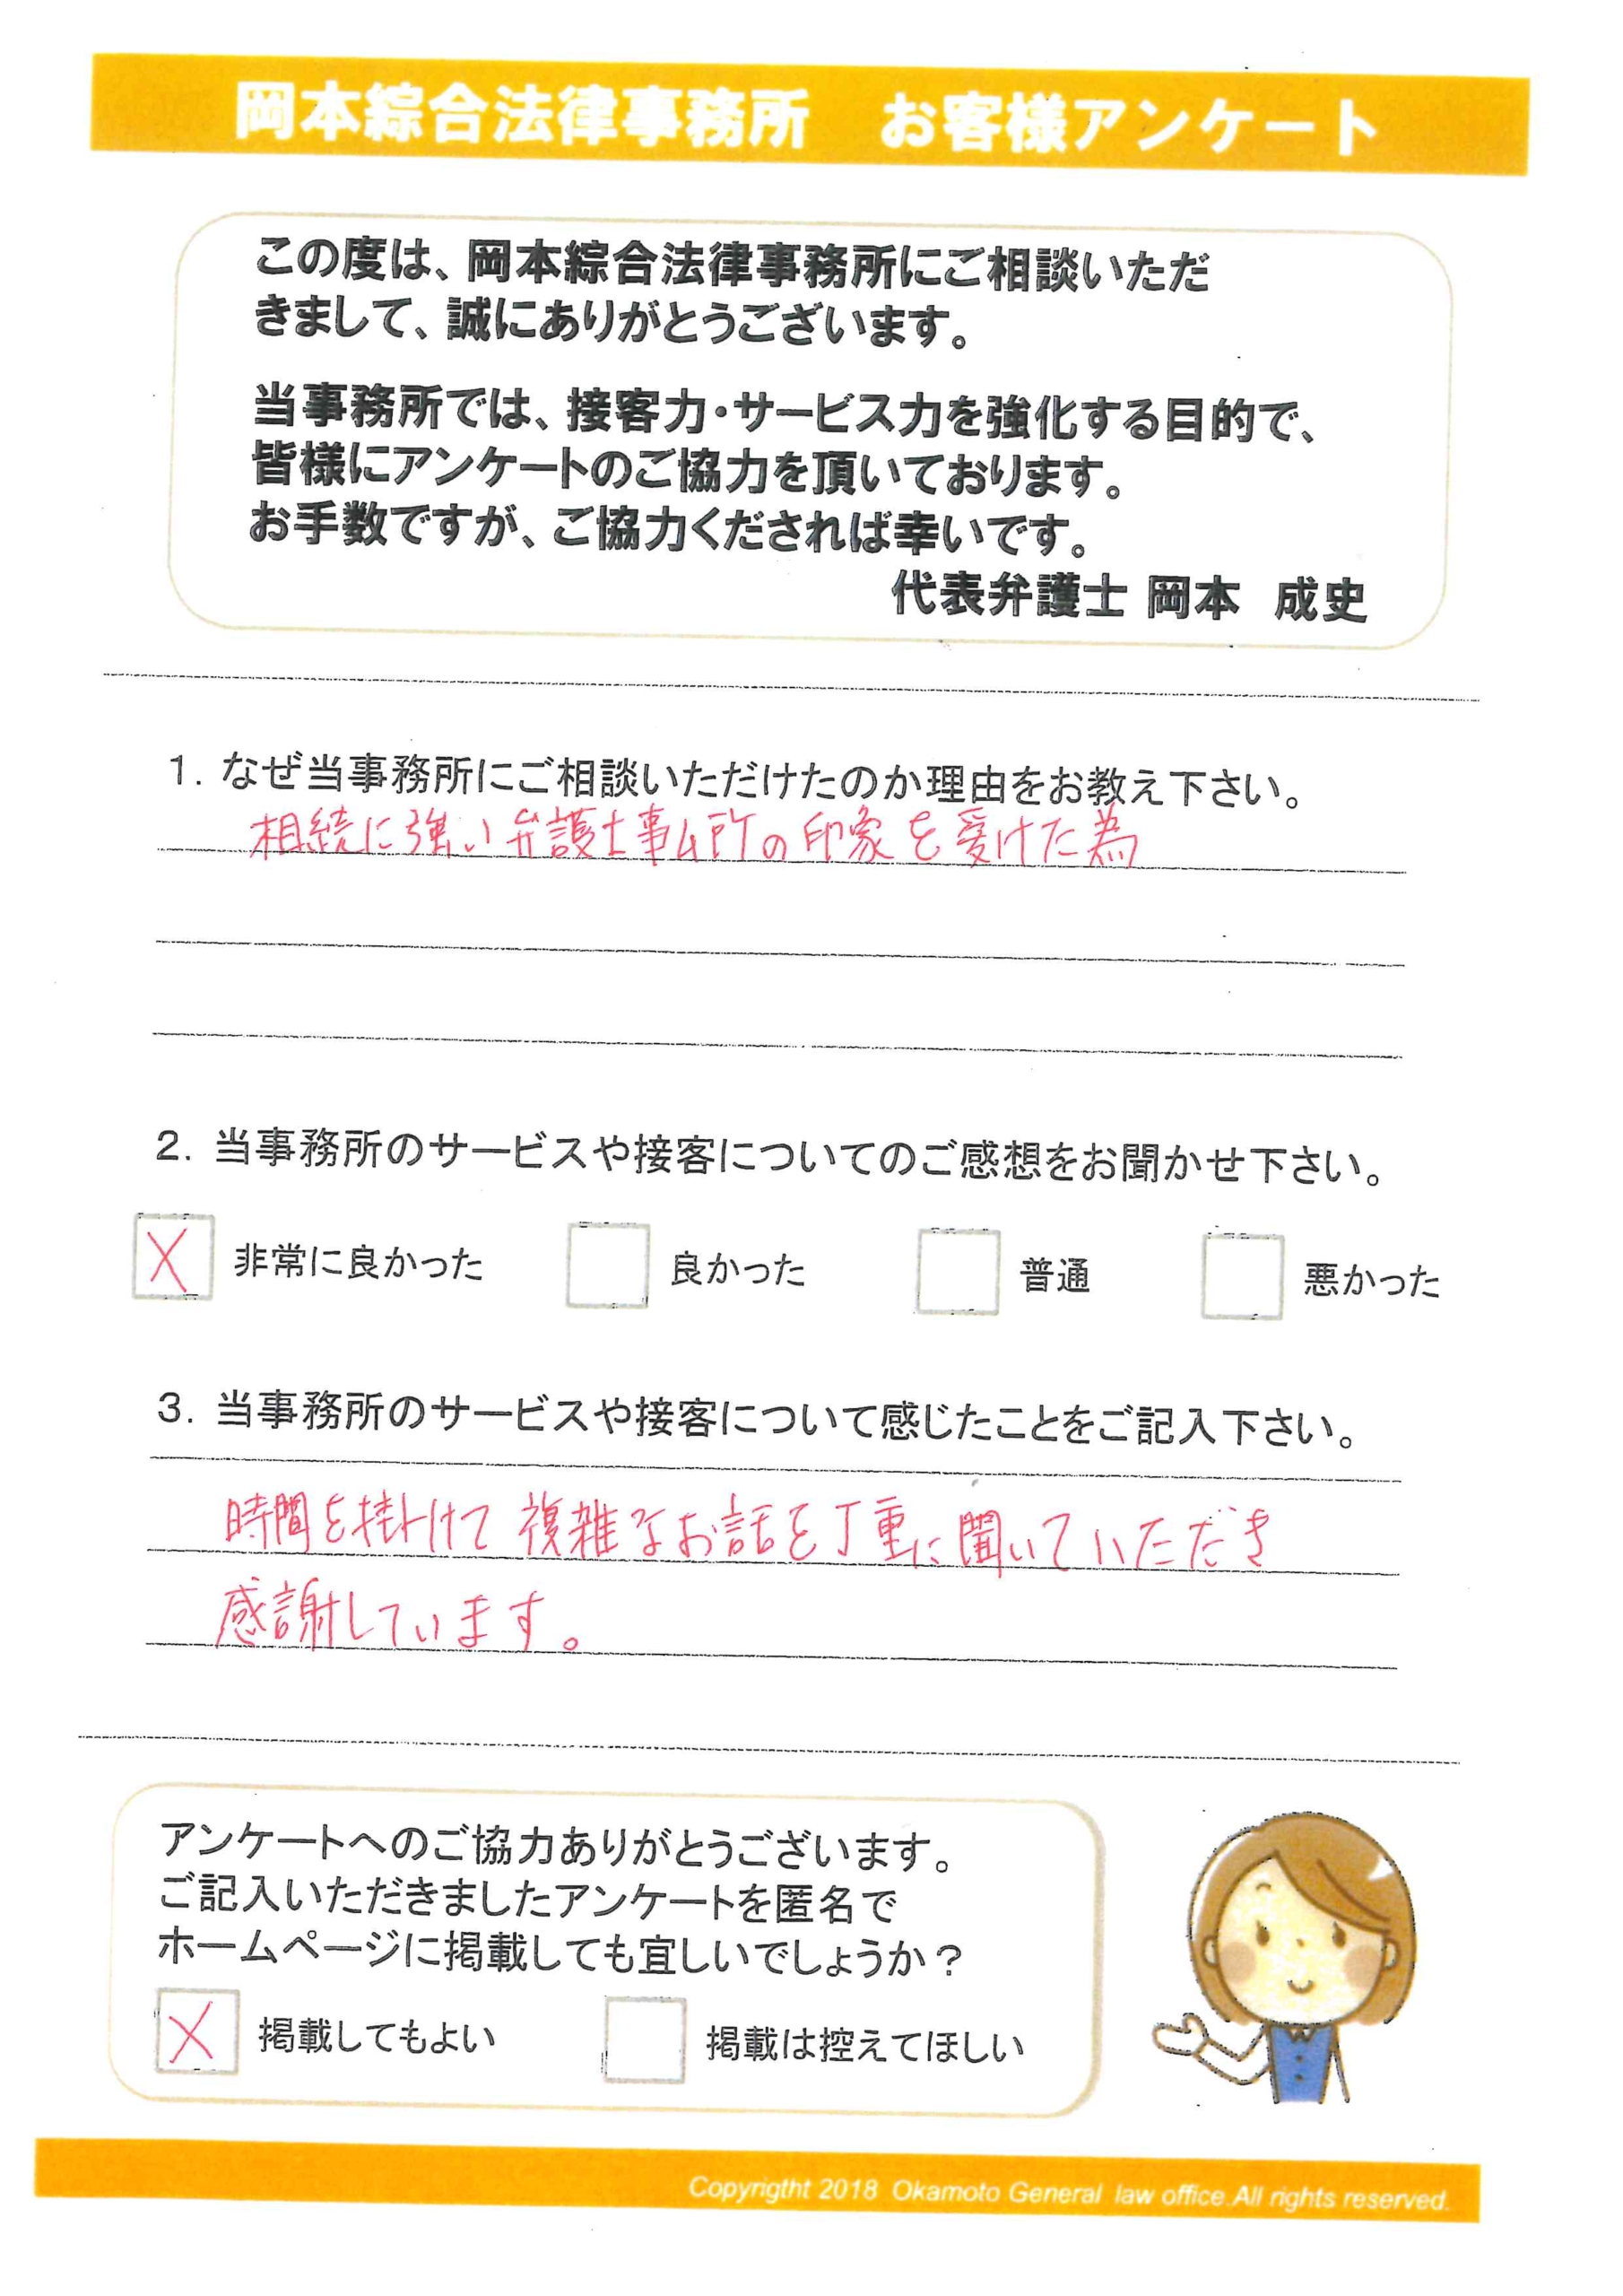 岡本綜合法律事務所　お客様アンケート
この度は、岡本綜合法律事務所にご相談いただ
きまして、誠にありがとうございます。
当事務所では、接客力・サービス力を強化する目的で、
皆様にアンケートのご協力を頂いております。
お手数ですが、ご協力くだされば幸いです。
代表弁護士 岡本　成史
1. なぜ当事務所にご相談いただけたのか理由をお教え下さい。
相続に強い弁護士事ム所の印象を受けた為
2. 当事務所のサービスや接客についてのご感想をお聞かせ下さい。
X 非常に良かった　良かった　普通　悪かった
3. 当事務所のサービスや接客について感じたことをご記入下さい。
時間を掛けて複雑なお話を丁重に聞いていただき
感謝しています。
アンケートへのご協力ありがとうございます。
ご記入いただきましたアンケートを匿名で
ホームページに掲載しても宜しいでしょうか？
X 掲載してもよい　掲載は控えてほしい
Copyrigtht 2018 Okamoto General law office.All rights reserved.